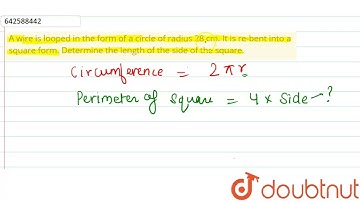 642588442
A wire is looped in the form of a circle of radius 28 cm. It is re-bent into a
square form. Determine the length of the side of the square.
Circumference = 2πr
Perimeter of square = 4 × Side - ?
doubtnut